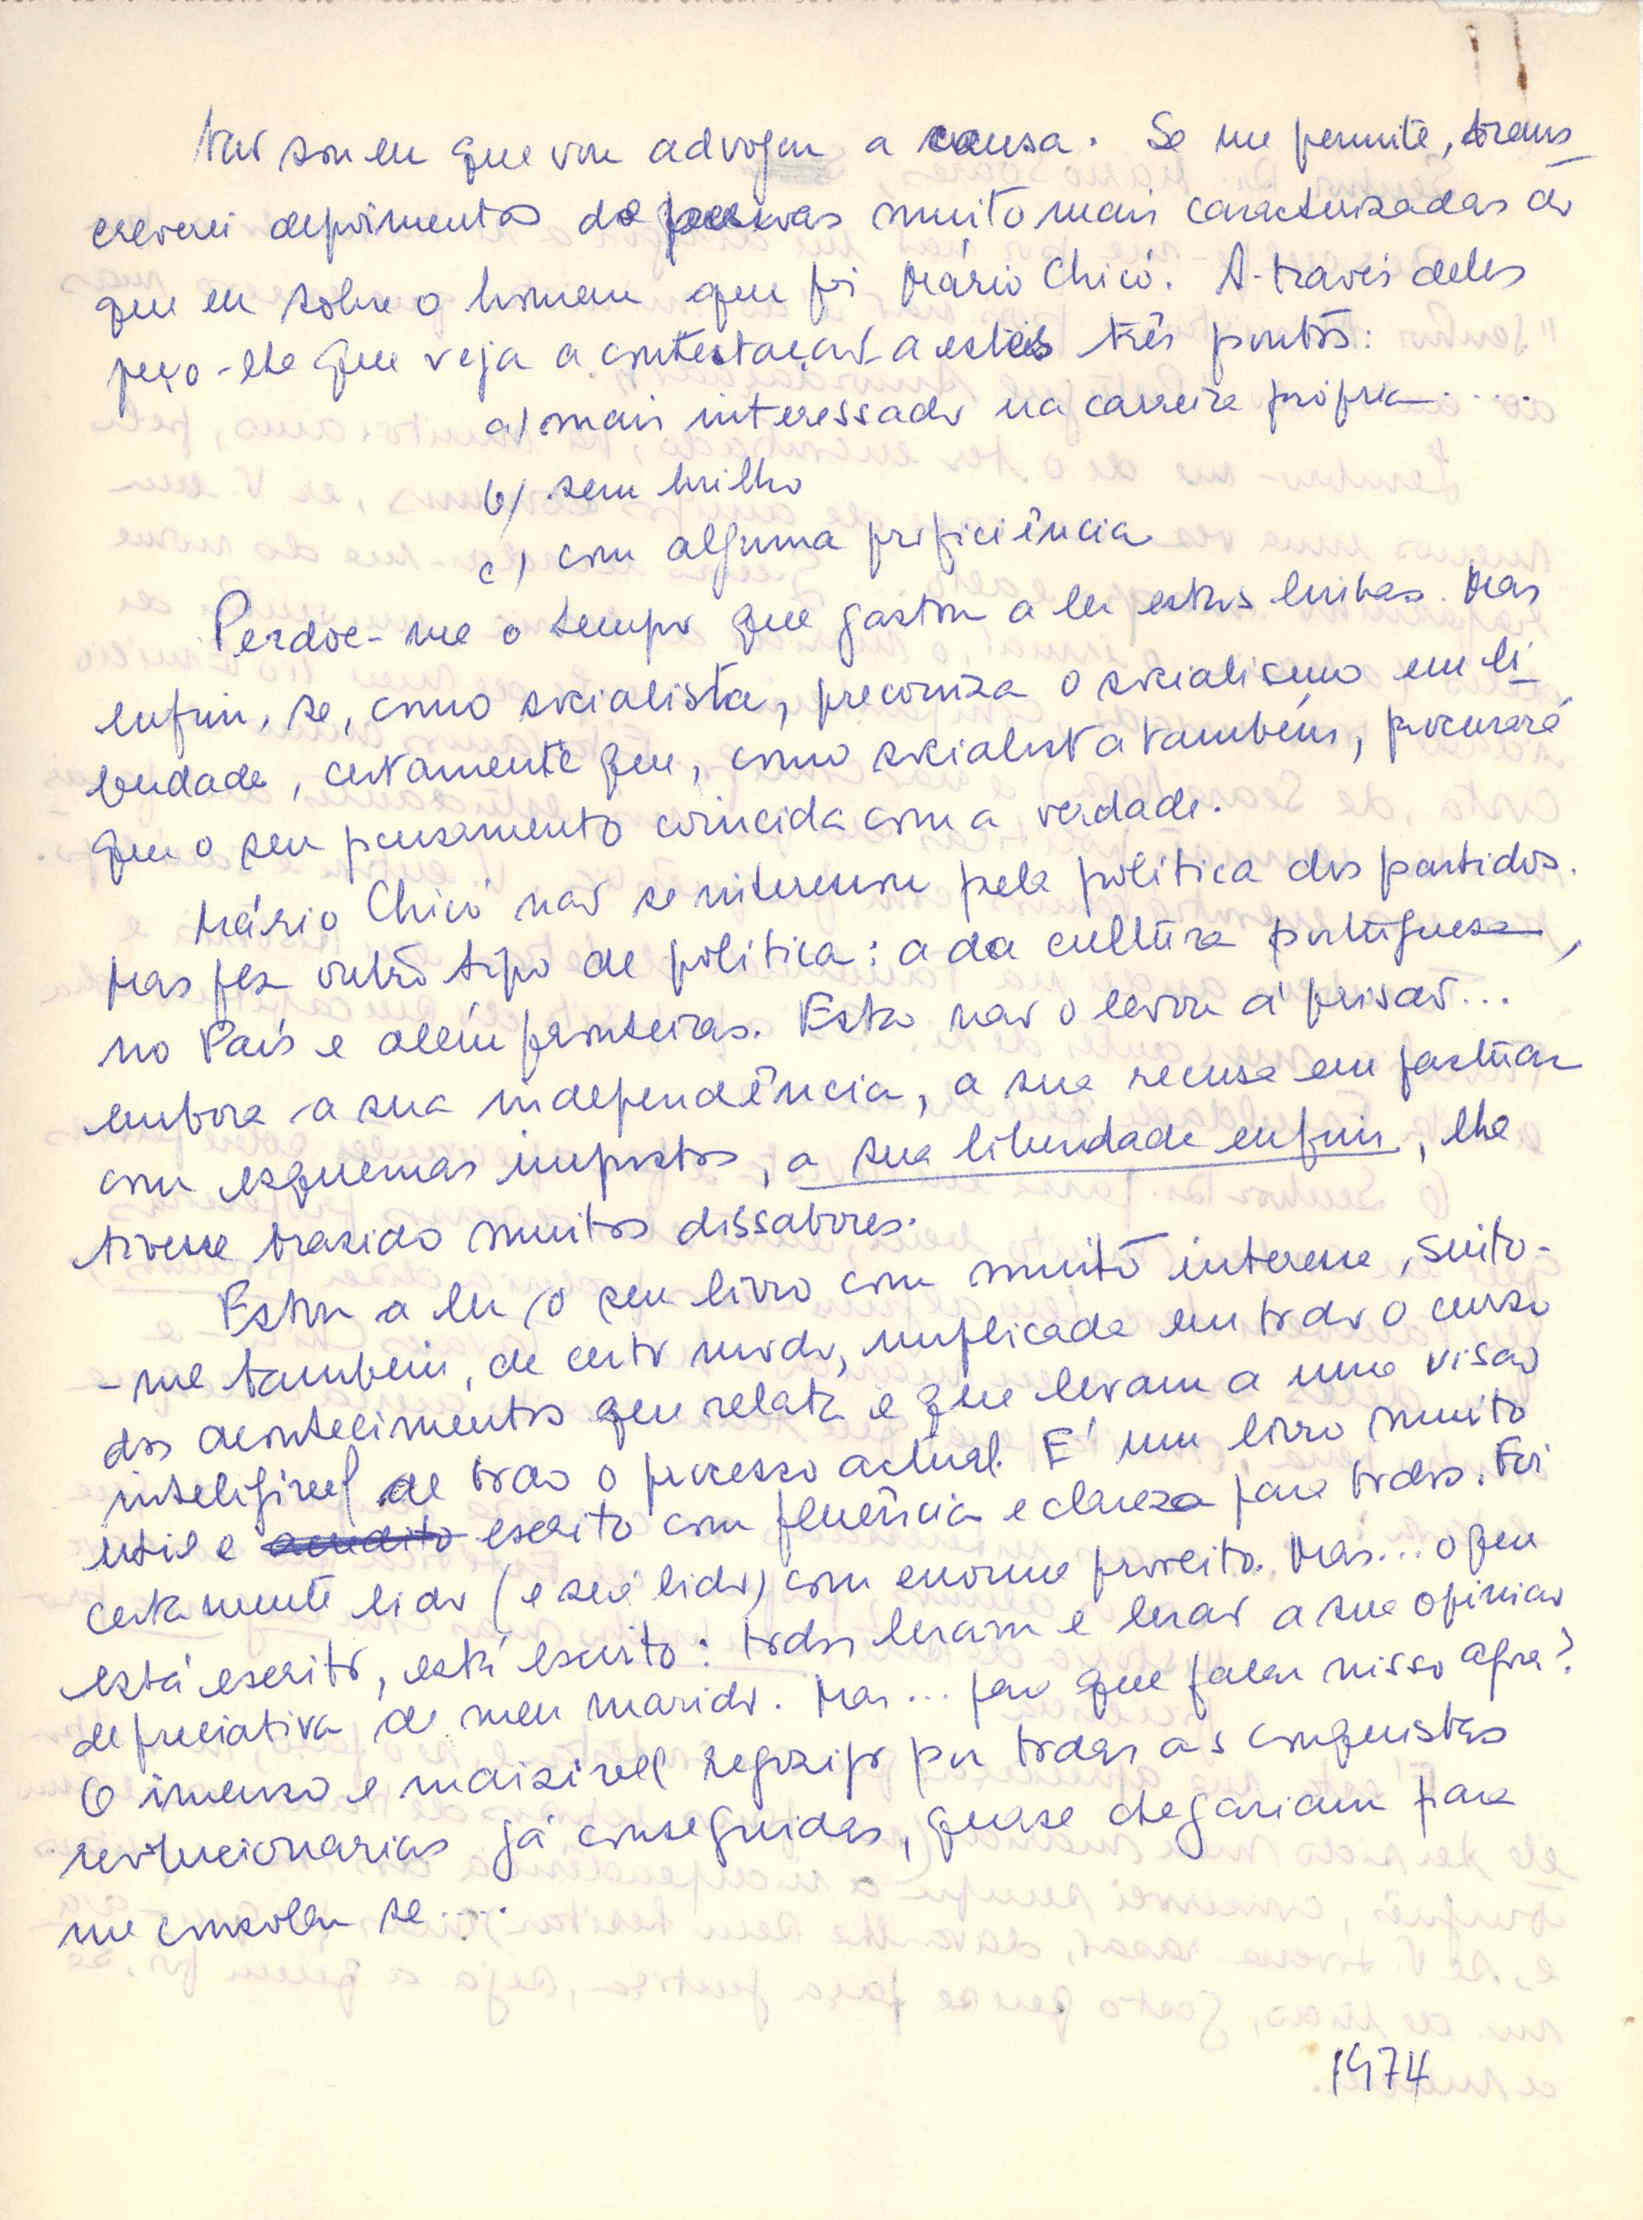 Não sou eu que vou advogar a causa. Se me permite, trans
creverei depoimentos de pessoas muito mais caracterizadas do
que eu sobre o homem que foi Mário Chicó. A-través deles
peço-lhe que veja a contestação a estes três pontos:
a) mais interessado na carreira própria....
b) sem brilho
c) com alguma proficiência
Perdoe-me o tempo que gastou a ler estas linhas. Mas
enfim, se, como socialista, preconiza o socialismo em li
berdade, certamente que, como socialista também, procurará
que o seu pensamento coincida com a verdade.
Mário Chicó não se interessou pela política dos partidos.
Mas fez outro tipo de política: a da cultura portuguesa,
no País e além fronteiras. Esta não o levou à prisão...
embora a sua independência, a sua recusa em pactuar
com esquemas impostos, a sua liberdade enfim, lhe
tivesse trazido muitos dissabores.
Estou a ler o seu livro com muito interesse, sinto-
-me também, de certo modo, implicada em todo o curso
dos acontecimentos que relata e que levam a uma visão
inteligível de todo o processo actual. É um livro muito
útil e escrito com fluência e clareza para todos. Foi
certamente lido (e será lido) com enorme proveito. Mas... o que
está escrito, está escrito: todos leram e lerão a sua opinião
depreciativa de meu marido. Mas... para que falar nisso agora?
O imenso e indizível regozijo por todas as conquistas
revolucionarias já conseguidas, quase chegariam para
me consolar se.....
1974